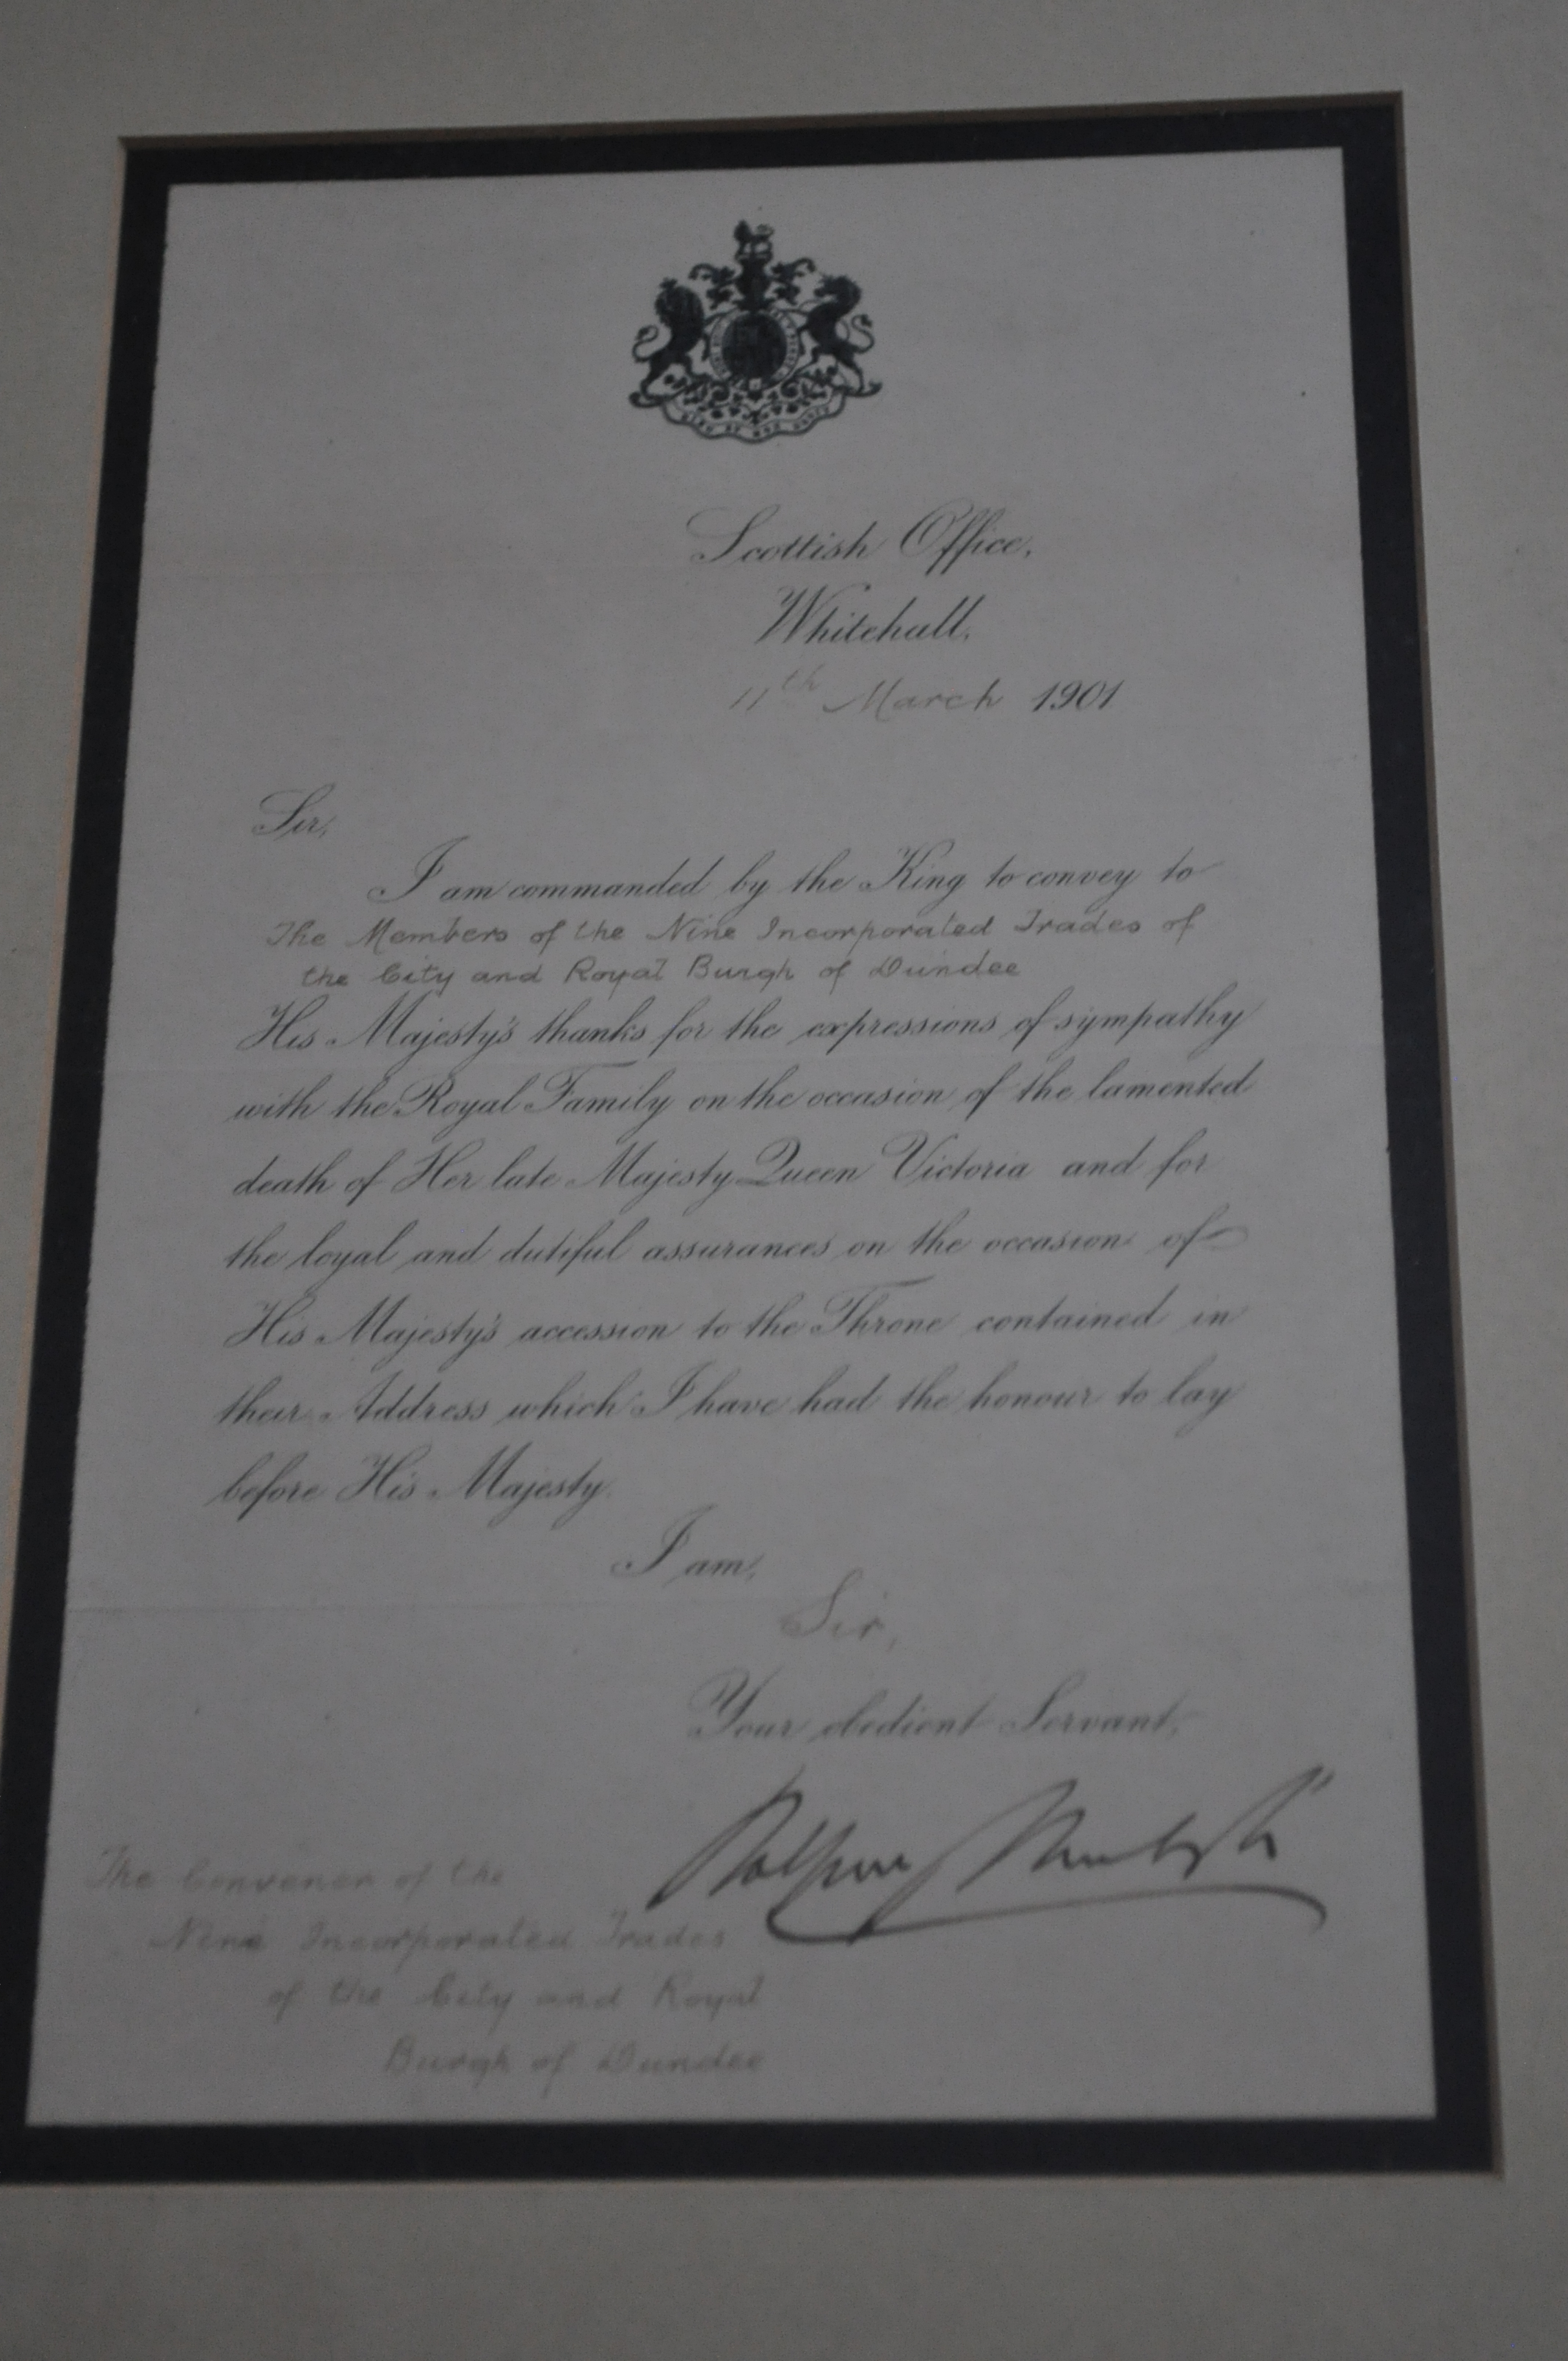 Scottish Office,
Whitehall.
11th March 1901
Sir,
I am commanded by the King to convey to
The Members of the Nine Incorporated Trades of
the City and Royal Burgh of Dundee
His Majesty's thanks for the expressions of sympathy
with the Royal Family on the occasion of the lamented
death of Her late Majesty Queen Victoria and for
the loyal and dutiful assurances on the occasion of
His Majesty's accession to the Throne contained in
their Address which I have had the honour to lay
before His Majesty.
I am,
Sir,
Your obedient Servant,
The Convener of the
Nine Incorporated Trades
of the City and Royal
Burgh of Dundee